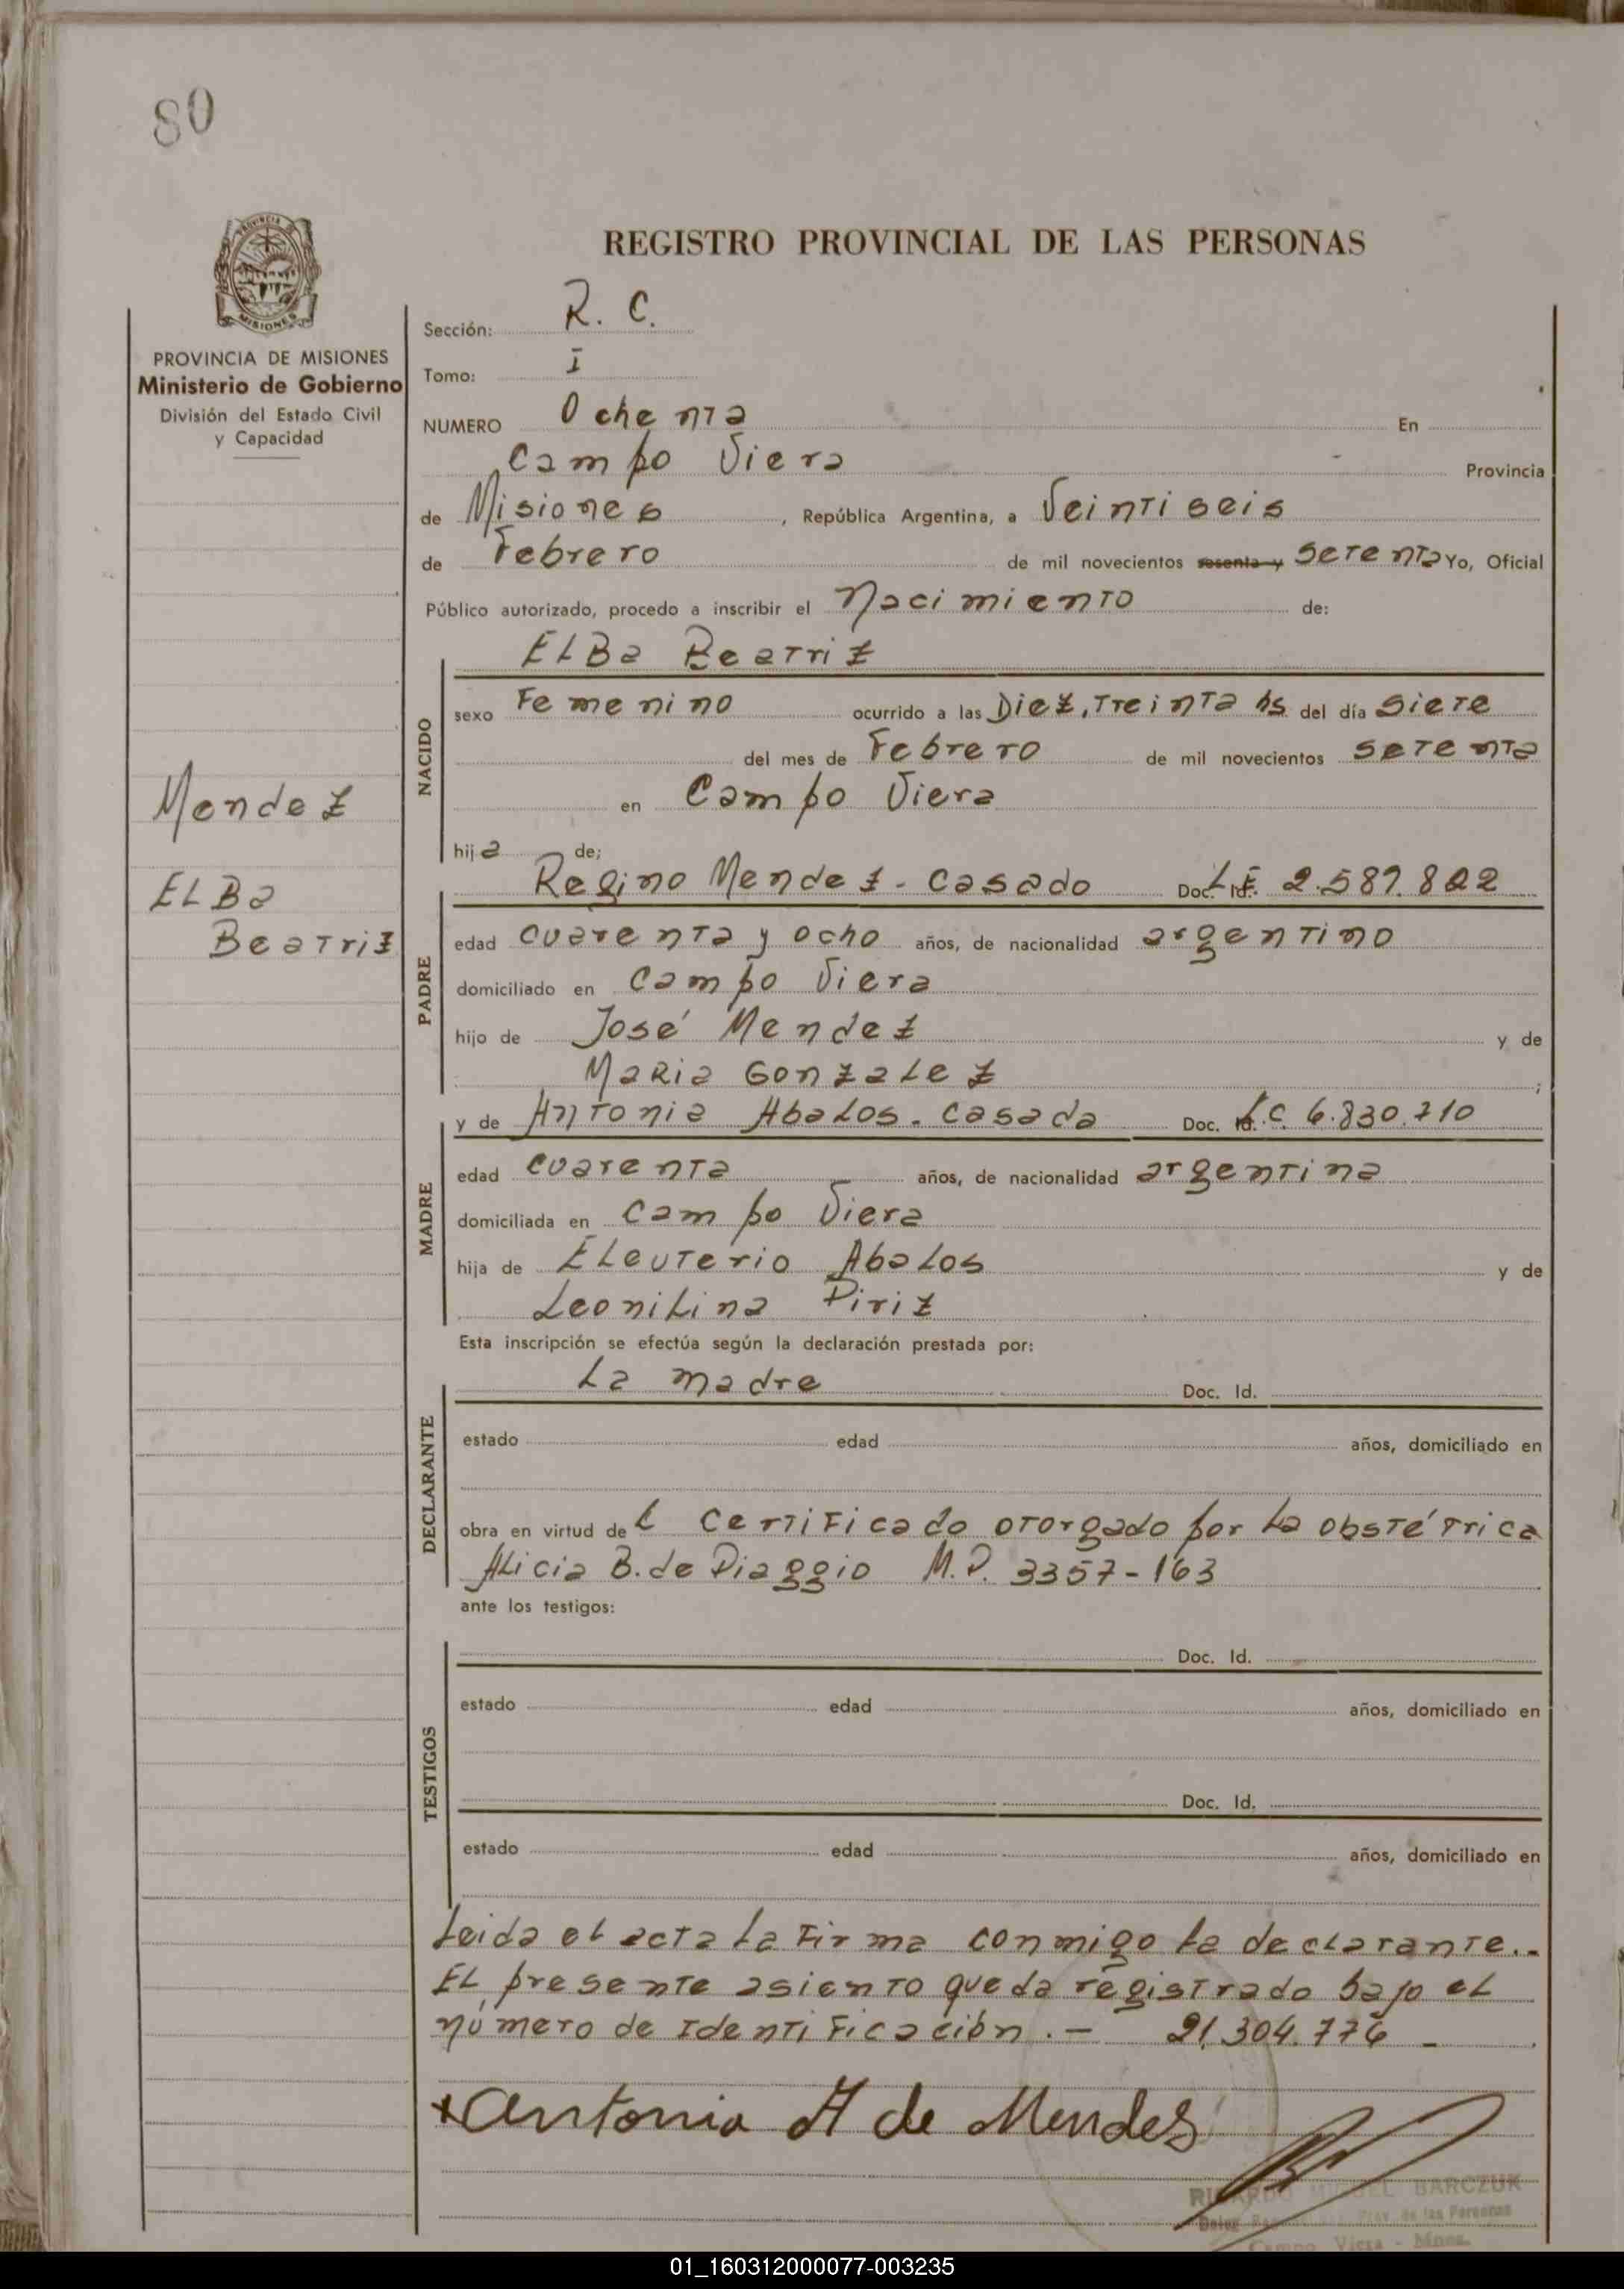 80
PROVINCIA
MISIONES
PROVINCIA DE MISIONES
Ministerio de Gobierno
División del Estado Civil
y Capacidad
Mendez
ELBa
Beatriz
REGISTRO PROVINCIAL DE LAS PERSONAS
Sección: R. C.
Tomo: I
NUMERO Ochenta En
Campo Viera Provincia
de Misiones, República Argentina, a Veintiseis
de Febrero de mil novecientos sesenta y Setenta Yo, Oficial
Público autorizado, procedo a inscribir el Nacimiento de:
NACIDO
ELBa Beatriz
sexo Femenino ocurrido a las Diez, Treinta hs del día Siete
del mes de Febrero de mil novecientos setenta
en Campo Viera
hija de;
PADRE
Regino Mendez - Casado Doc. Id. L.E. 2.587.822
edad cuarenta y ocho años, de nacionalidad argentino
domiciliado en Campo Viera
hijo de José Mendez y de
Maria Gonzalez ;
MADRE
y de Antonia Abalos. casada Doc. Id. L.C. 6.830.710
edad cuarenta años, de nacionalidad argentina
domiciliada en Campo Viera
hija de Eleuterio Abalos y de
Leonilina Piriz
Esta inscripción se efectúa según la declaración prestada por:
DECLARANTE
La madre Doc. Id.
estado edad años, domiciliado en
obra en virtud del Certificado otorgado por la obstétrica
Alicia B. de Piaggio M.P. 3357-163
ante los testigos:
TESTIGOS
Doc. Id.
estado edad años, domiciliado en
Doc. Id.
estado edad años, domiciliado en
Leida el acta la Firma conmigo la declarante..
El presente asiento queda registrado bajo el
número de Identificación.- 21.304.776 -
Antonia A de Mendes
RICARDO MIGUEL BARCZUK
Prov. de las Personas
Campo Viera - Mnes.
01_160312000077-003235